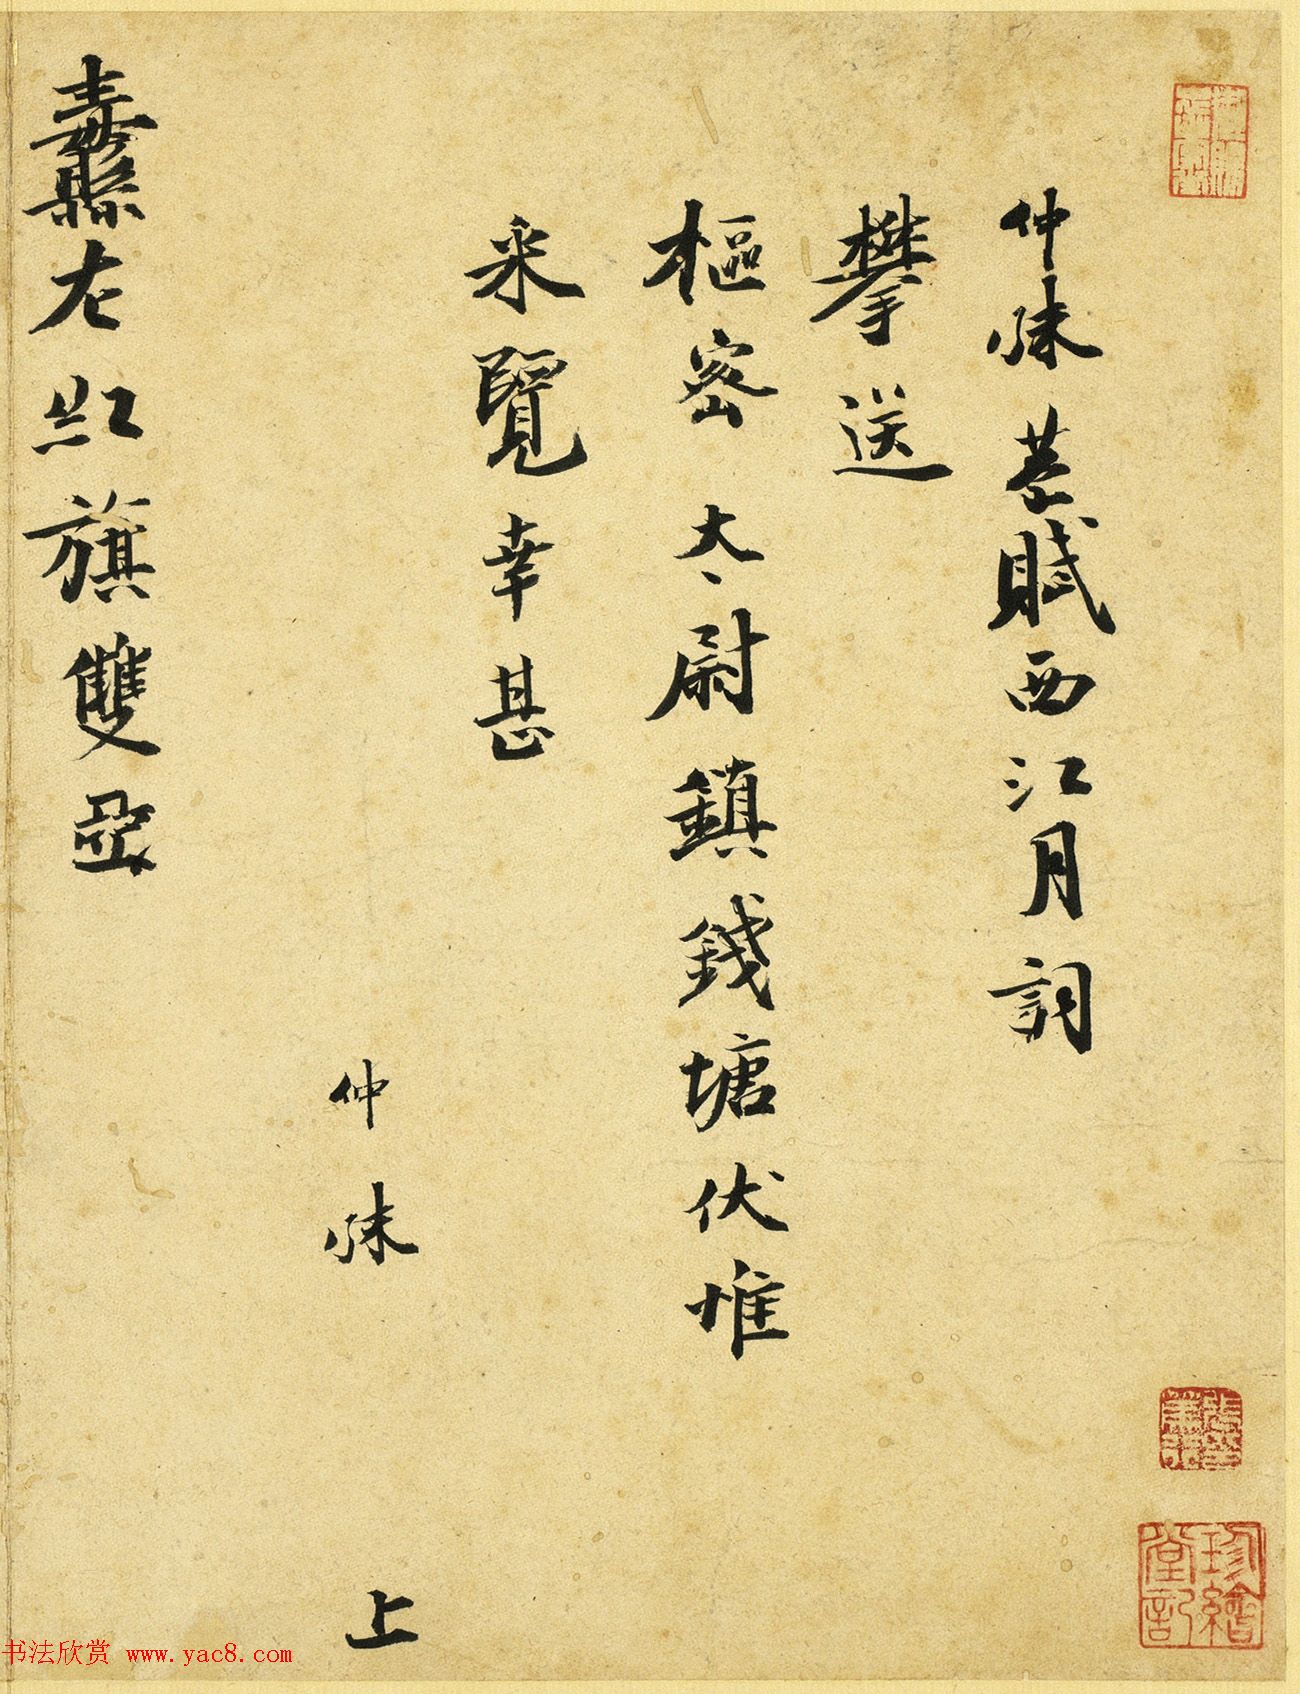 仲殊 賦西江月詞
攀送
樞密太尉鎮錢塘伏惟
采覽幸甚
仲殊 上
纛左紅旗雙亞
珍繪堂記
书法欣赏 www.yac8.com